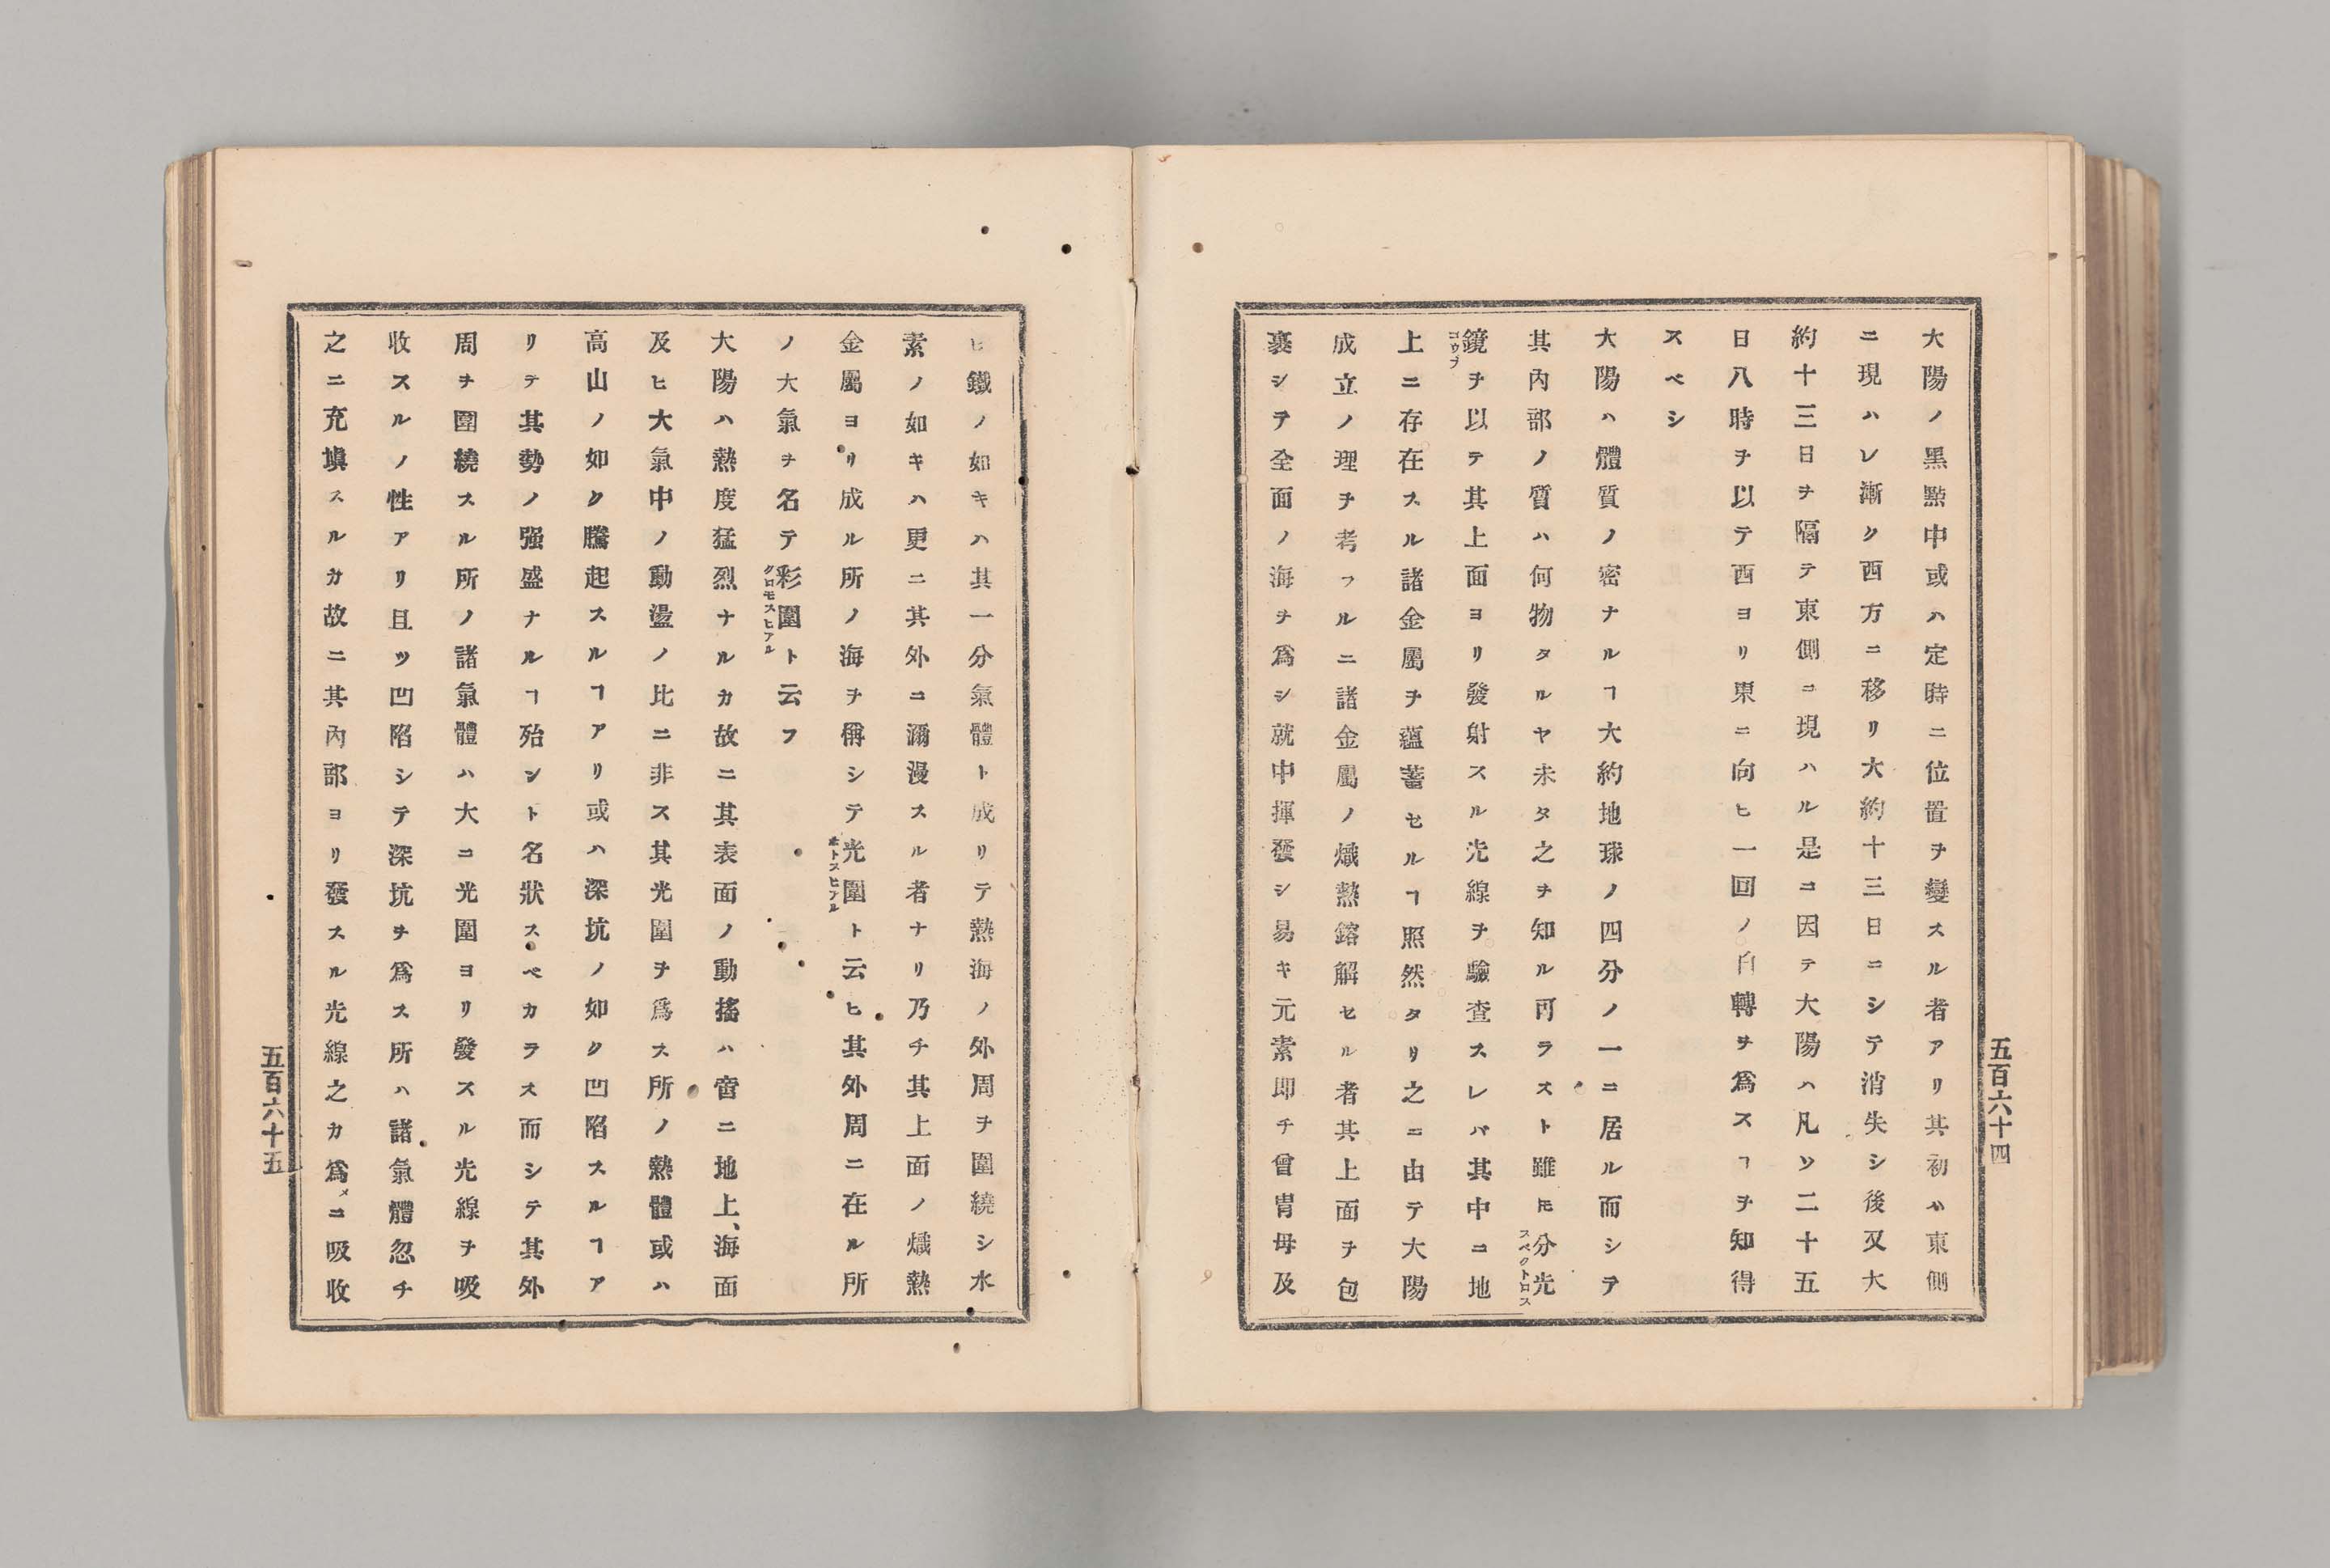 大陽ノ黒點中或ハ定時ニ位置ヲ變スル者アリ其初ハ東側
ニ現ハレ漸ク西方ニ移リ大約十三日ニシテ消失シ後又大
約十三日ヲ隔テ東側ニ現ハル是ニ因テ大陽ハ凡ツ二十五
日八時ヲ以テ西ヨリ東ニ向ヒ一回ノ自轉ヲ爲スヿヲ知得
スベシ
大陽ハ體質ノ密ナルヿ大約地球ノ四分ノ一ニ居ル而シテ
其內部ノ質ハ何物タルヤ未タ之ヲ知ル可ラスト雖𪜈分光
スペクトロス
鏡ヲ以テ其上面ヨリ發射スル光線ヲ驗査スレバ其中ニ地
コウプ
上ニ存在スル諸金屬ヲ蘊蓄セルヿ照然タリ之ニ由テ大陽
成立ノ理ヲ考フルニ諸金屬ノ熾熱鎔解セル者其上面ヲ包
裹シテ全面ノ海ヲ爲シ就中揮發シ易キ元素即チ曾冑母及
五百六十四
ヒ鐵ノ如キハ其一分氣體ト成リテ熱海ノ外周ヲ圍繞シ水
素ノ如キハ更ニ其外ニ瀰漫スル者ナリ乃チ其上面ノ熾熱
金屬ヨリ成ル所ノ海ヲ稱シテ光圍ト云ヒ其外周ニ在ル所
ホトスヒアル
ノ大氣ヲ名テ彩圍ト云フ
クロモスヒアル
大陽ハ熱度猛烈ナルカ故ニ其表面ノ動搖ハ啻ニ地上、海面
及ヒ大氣中ノ動盪ノ比ニ非ス其光圍ヲ爲ス所ノ熱體或ハ
高山ノ如ク騰起スルヿアリ或ハ深坑ノ如ク凹陷スルヿア
リテ其勢ノ强盛ナルヿ殆ント名狀スベカラス而シテ其外
周ヲ圍繞スル所ノ諸氣體ハ大ニ光圍ヨリ發スル光線ヲ吸
收スルノ性アリ且ツ凹陷シテ深坑ヲ爲ス所ハ諸氣體忽チ
之ニ充塡スルカ故ニ其內部ヨリ發スル光線之カ爲メニ吸收
五百六十五